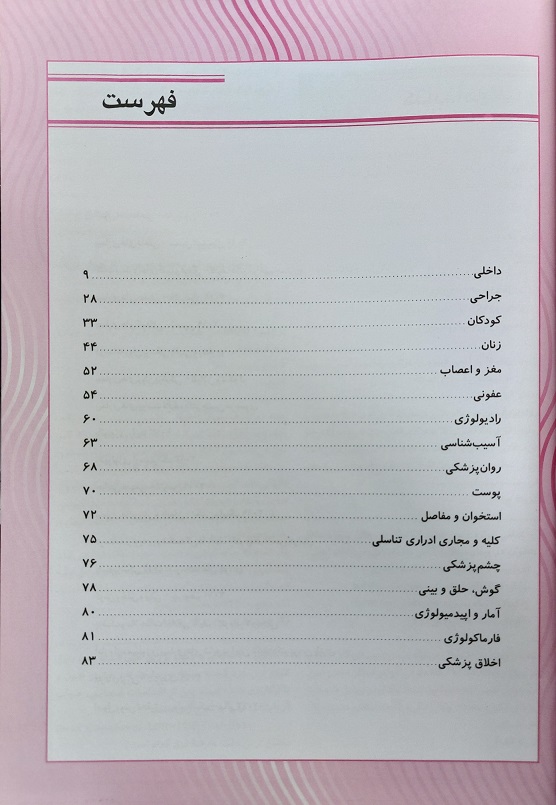 فهرست
داخلی ........ ۹
جراحی ........ ۲۸
کودکان ........ ۳۳
زنان ........ ۴۴
مغز و اعصاب ........ ۵۲
عفونی ........ ۵۴
رادیولوژی ........ ۶۰
آسیب‌شناسی ........ ۶۳
روان‌پزشکی ........ ۶۸
پوست ........ ۷۰
استخوان و مفاصل ........ ۷۲
کلیه و مجاری ادراری تناسلی ........ ۷۵
چشم‌پزشکی ........ ۷۶
گوش، حلق و بینی ........ ۷۸
آمار و اپیدمیولوژی ........ ۸۰
فارماکولوژی ........ ۸۱
اخلاق پزشکی ........ ۸۳